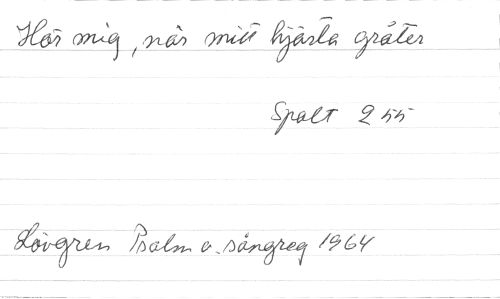 Hör mig, när mitt hjärta gråter
Spalt 255
Lövgren Psalm o. sångreg 1964